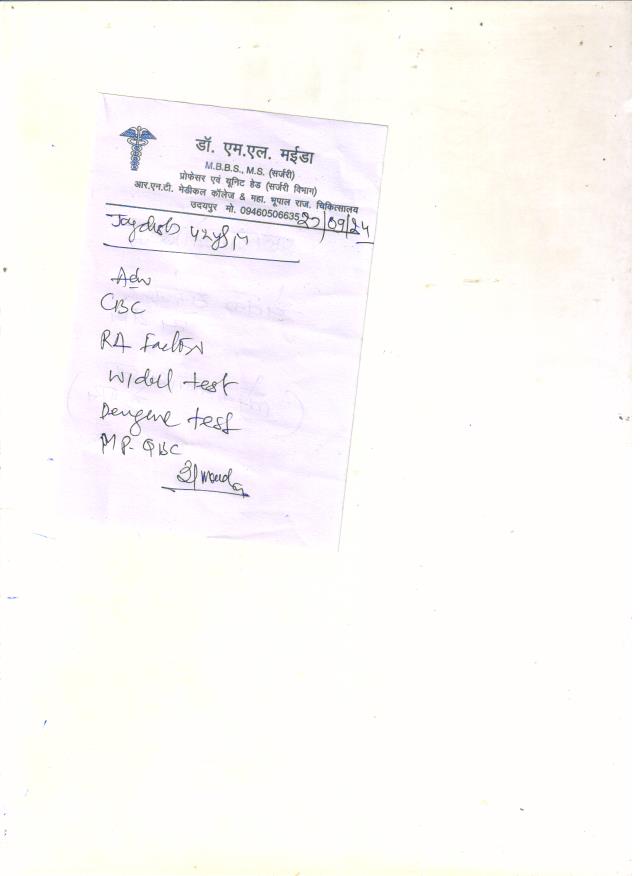 डॉ. एम.एल. मईडा
M.B.B.S., M.S. (सर्जरी)
प्रोफेसर एवं यूनिट हेड (सर्जरी विभाग)
आर.एन.टी. मेडीकल कॉलेज & महा. भूपाल राज. चिकित्सालय
उदयपुर मो. 09460506635
/09/24
42y M
Adv
CBC
RA Factor
Widel test
Dengue test
MP-QBC